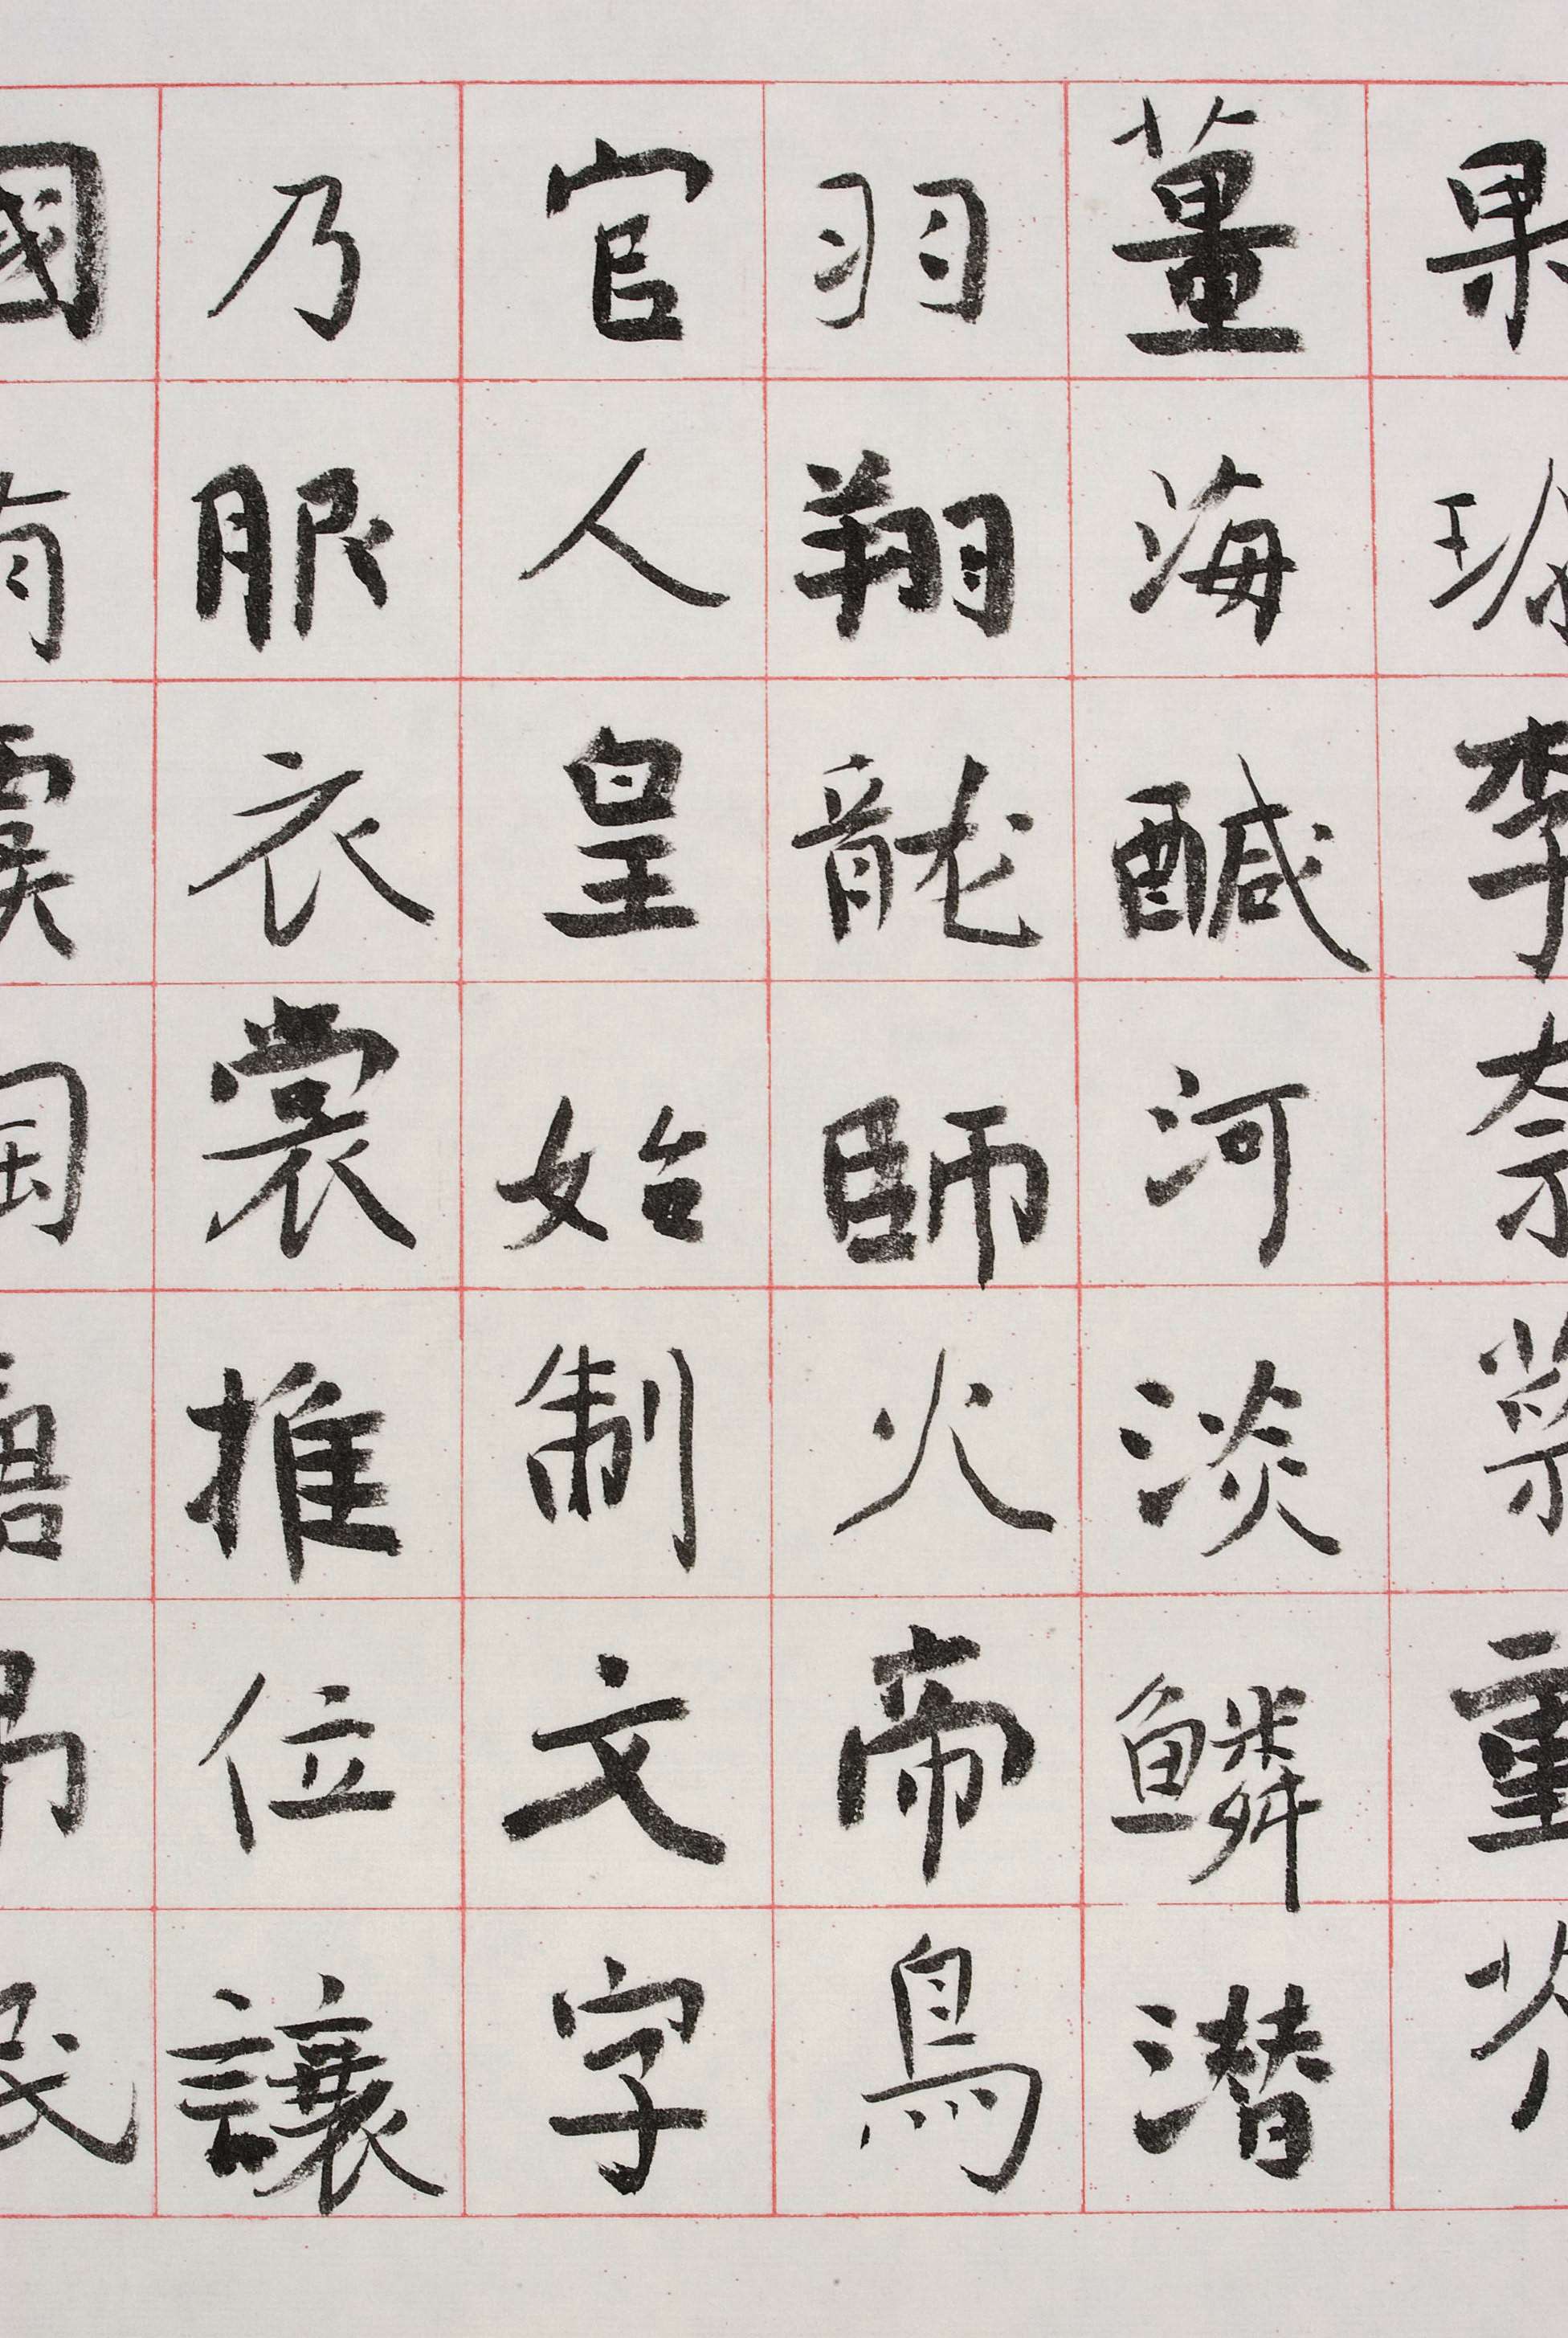 果珍李奈菜重芥
薑海醎河淡鱗潜
羽翔龍師火帝鳥
官人皇始制文字
乃服衣裳推位讓
國有虞陶唐吊民